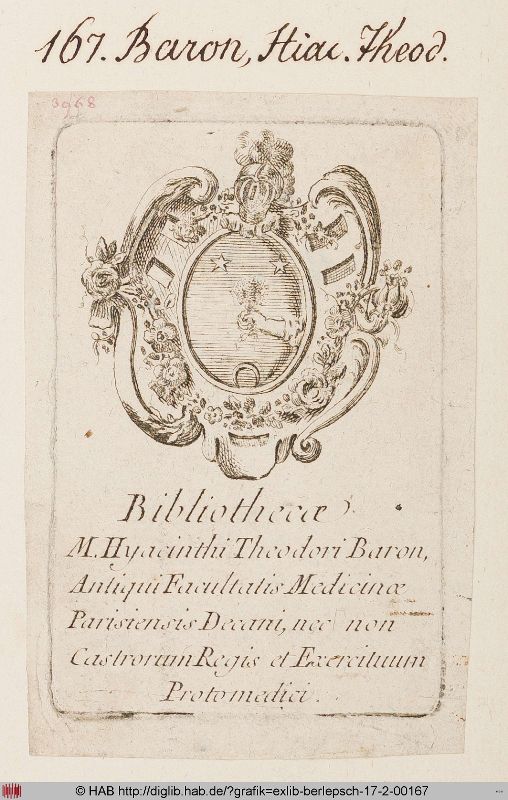 167. Baron, Hiac. Theod.
3968
Bibliothecæ
M. Hyacinthi Theodori Baron,
Antiqui Facultatis Medicinæ
Parisiensis Decani, nec non
Castrorum Regis et Exercituum
Protomedici.
© HAB http://diglib.hab.de/?grafik=exlib-berlepsch-17-2-00167